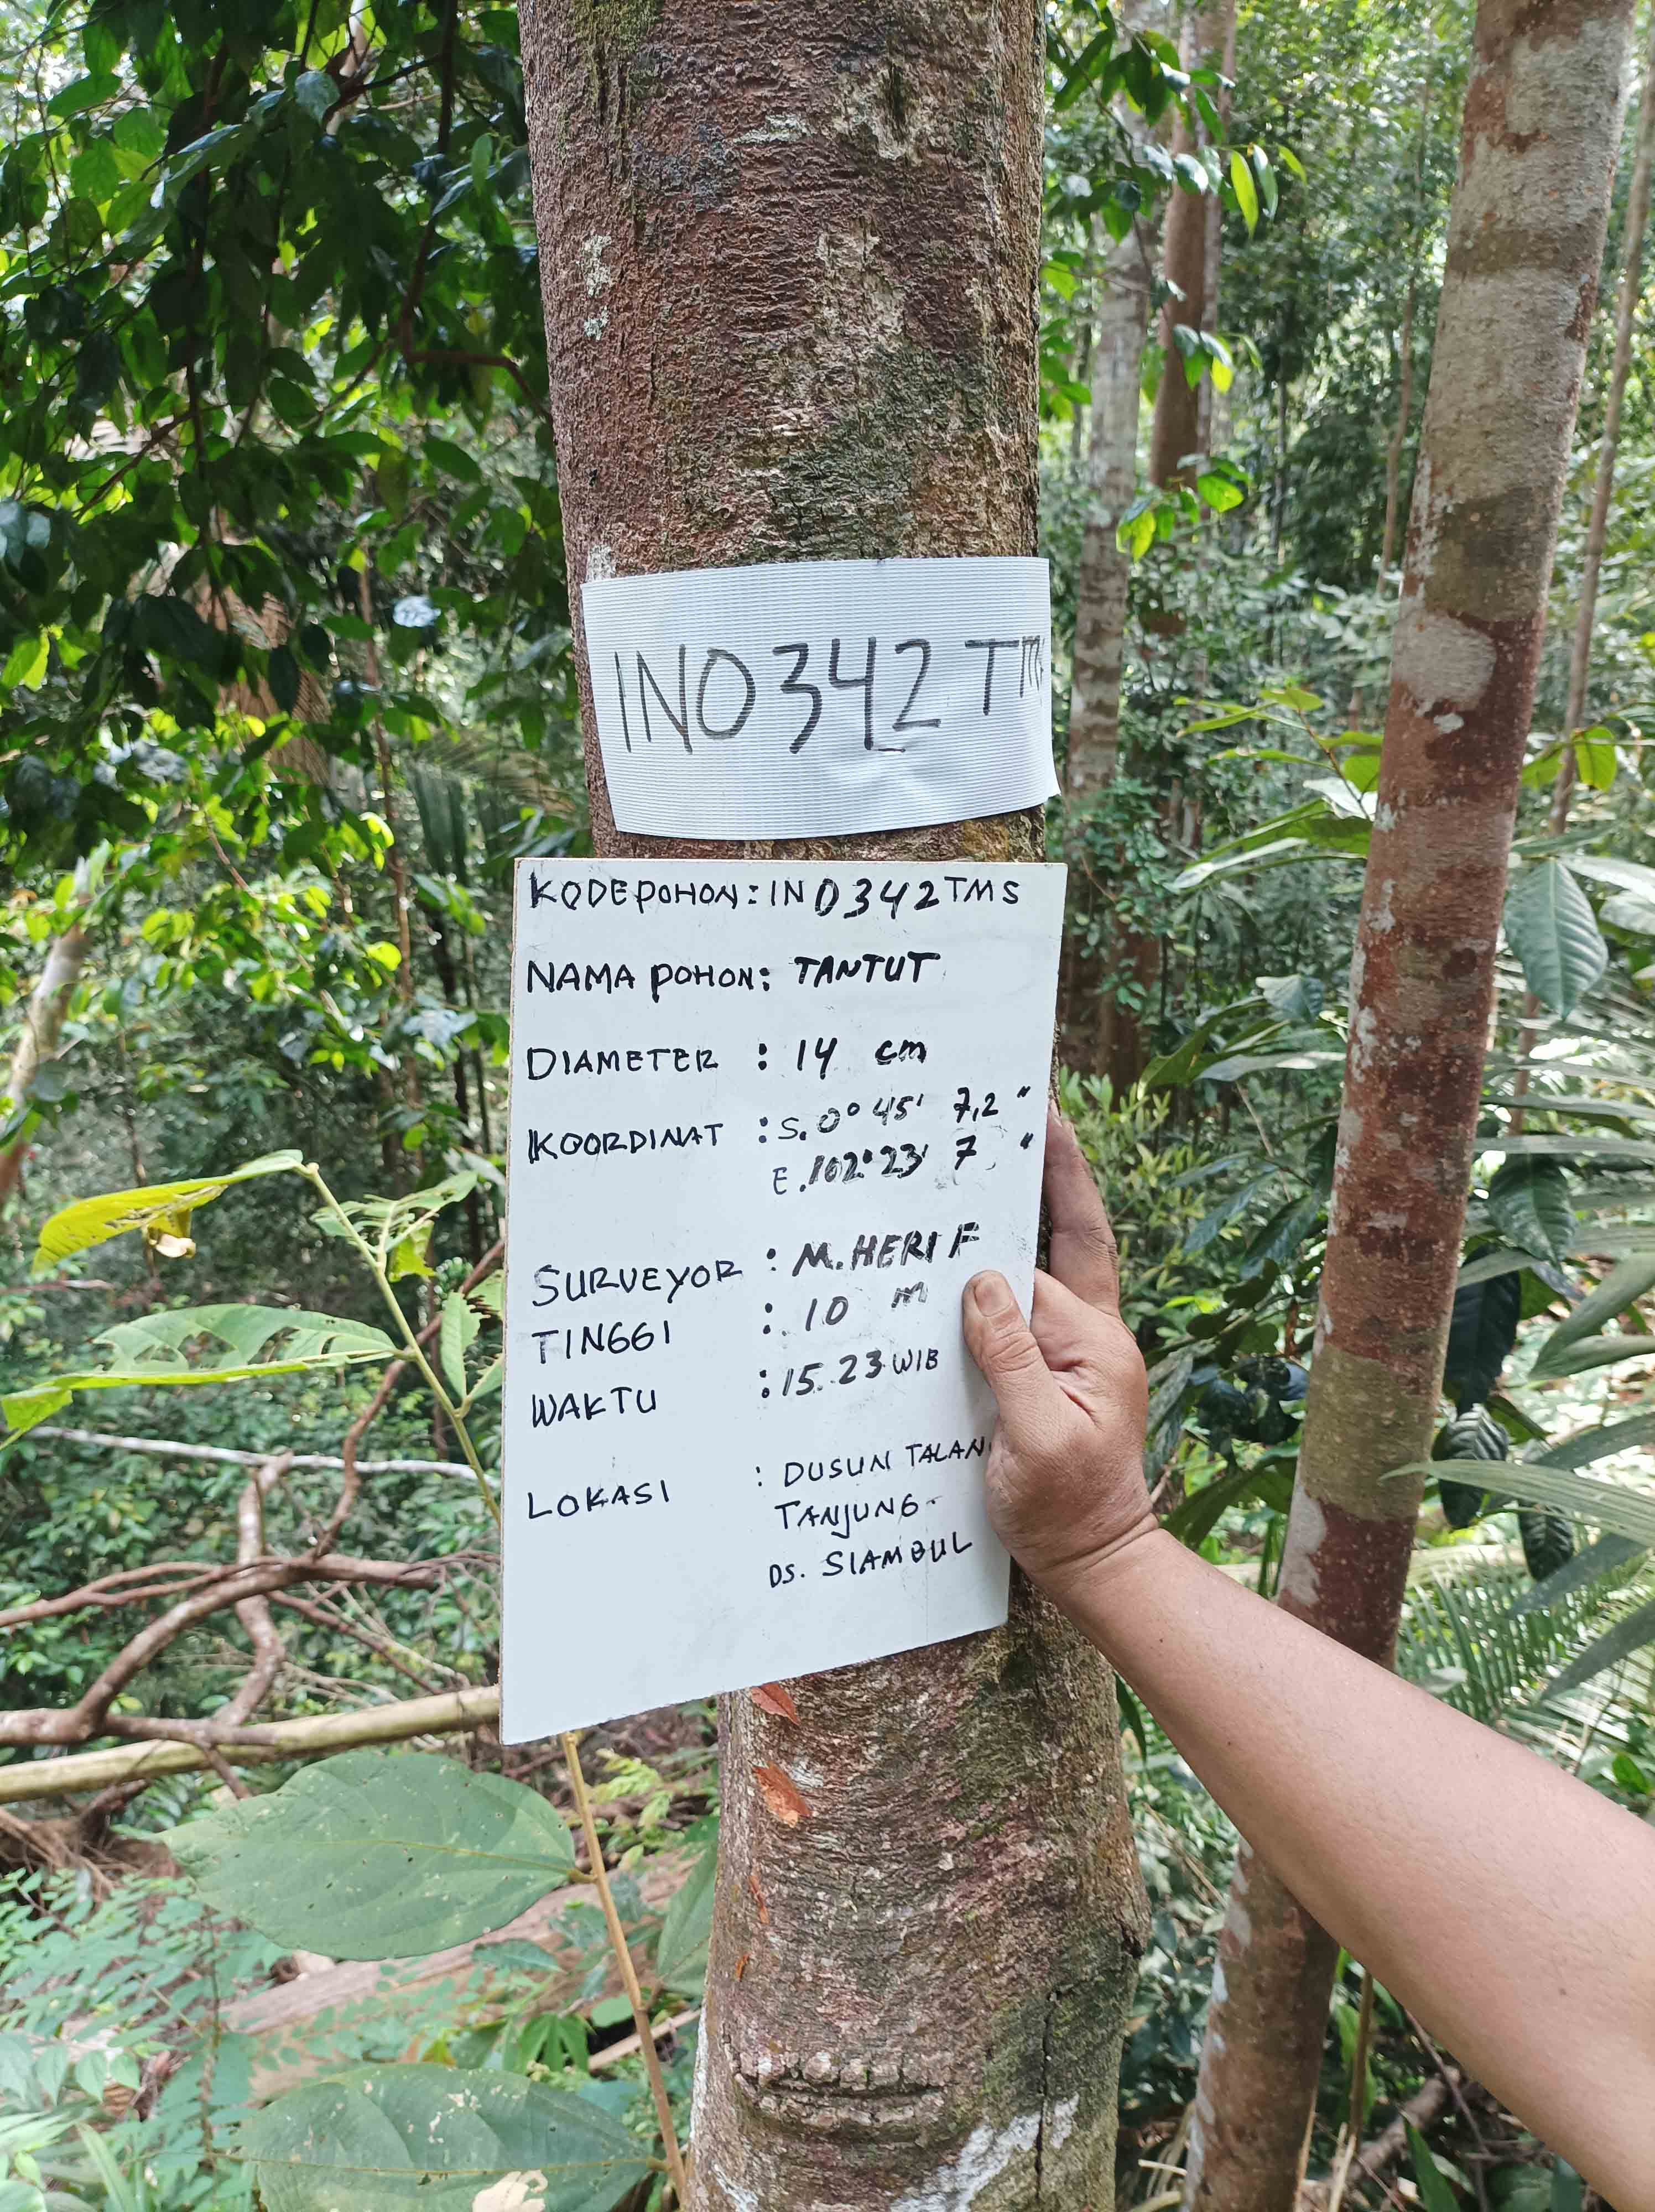 INO342 TMS
KODE POHON : INO342TMS
NAMA POHON : TANTUT
DIAMETER : 14 cm
KOORDINAT : S. 0° 45' 7,2 "
E. 102° 23' 7 "
SURVEYOR : M. HERI F
TINGGI : 10 m
WAKTU : 15.23 WIB
LOKASI : DUSUN TALAN
TANJUNG.
DS. SIAMBUL